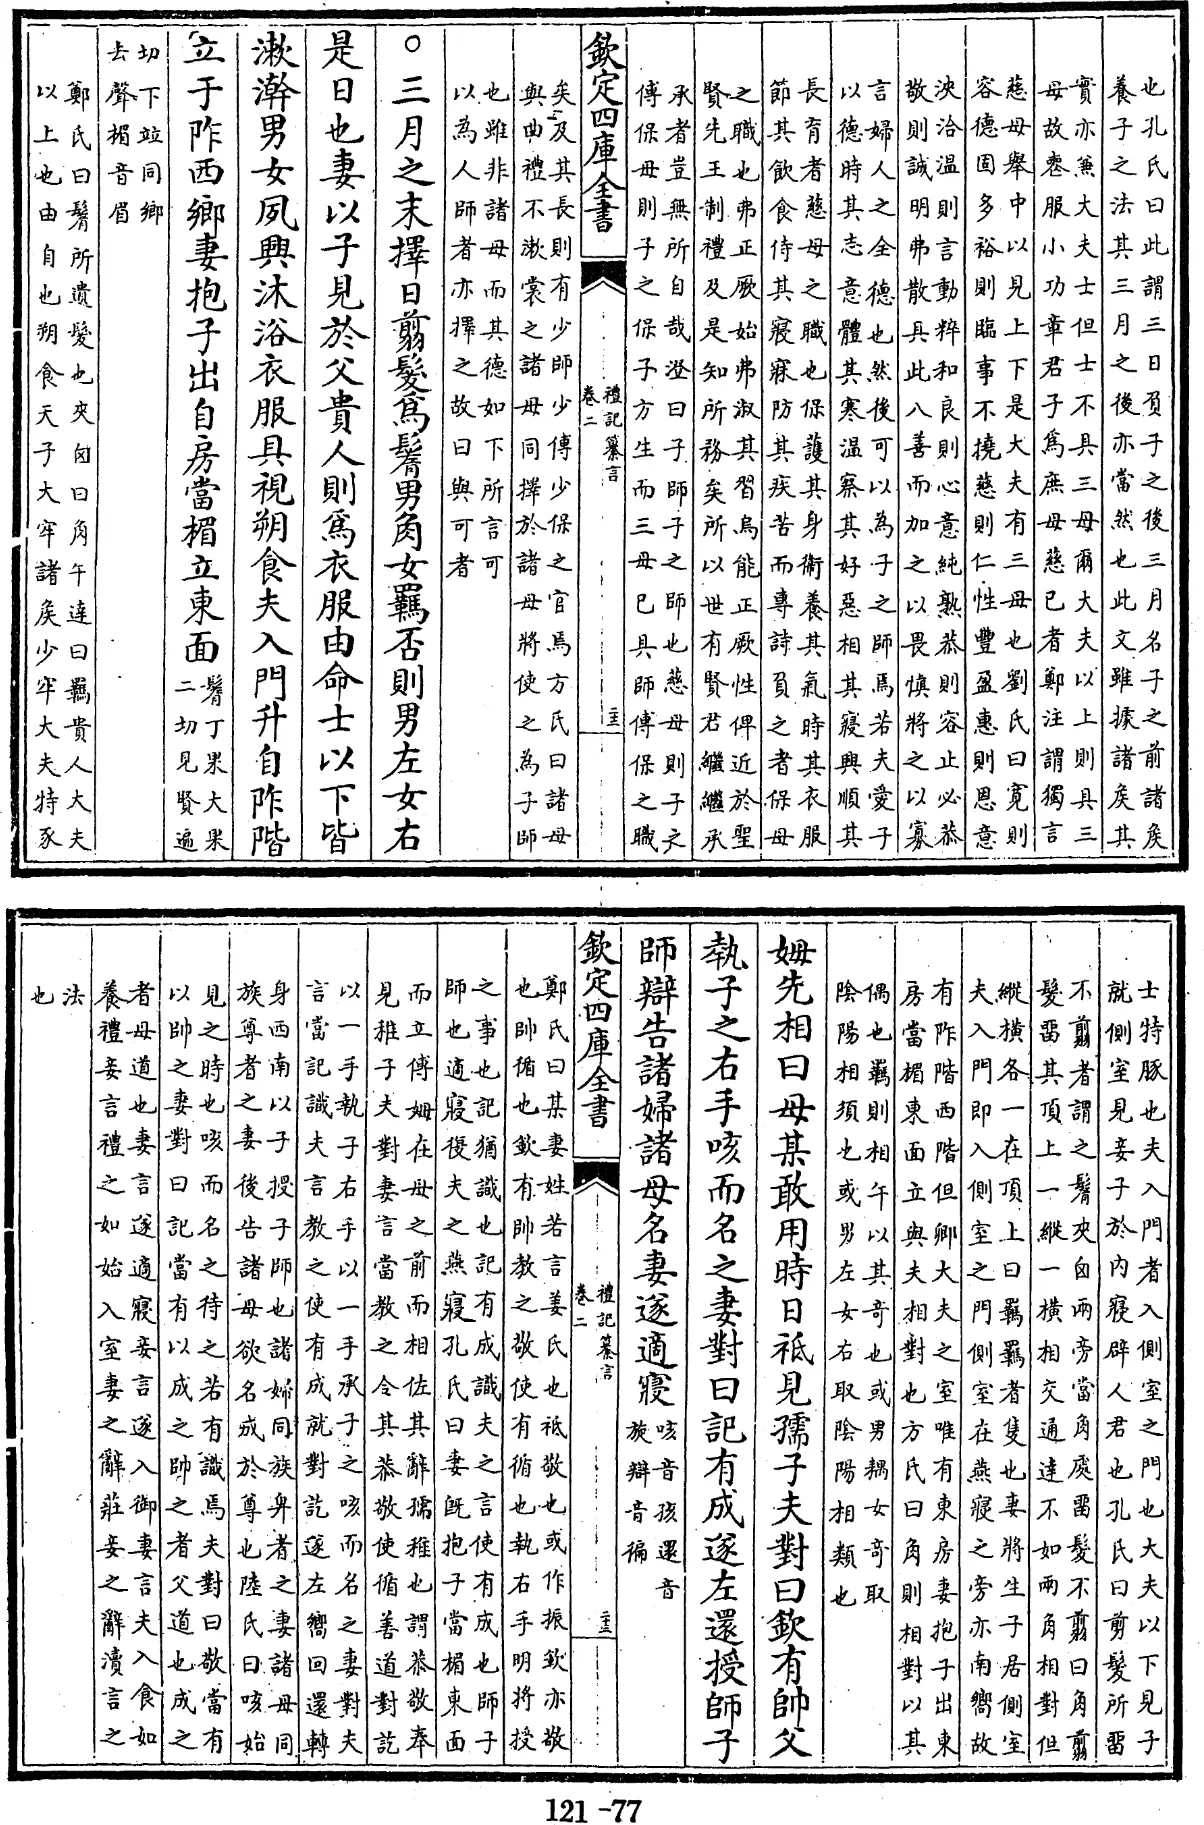 也孔氏曰此謂三日負子之後三月名子之前諸矦
養子之法其三月之後亦當然也此文雖據諸矦其
實亦兼大夫士但士不具三母爾大夫以上則具三
母故喪服小功章君子爲庶母慈已者鄭注謂獨言
慈母舉中以見上下是大夫有三母也劉氏曰寛則
容德固多裕則臨事不撓慈則仁性豐盈惠則恩意
浹洽溫則言動粹和良則心意純熟恭則容止必恭
敬則誠明弗散具此八善而加之以畏慎將之以寡
言婦人之全德也然後可以為子之師焉若夫愛子
以德時其志意體其寒温察其好惡相其寢興順其
長育者慈母之職也保護其身衞養其氣時其衣服
節其飲食侍其寢寐防其疾苦而專詩負之者保母
之職也弗正厥始弗淑其習烏能正厥性俾近於聖
賢先王制禮及是知所務矣所以世有賢君繼繼承
承者豈無所自哉澄曰子師子之師也慈母則子之
傅保母則子之保子方生而三母已具師傅保之職
欽定四庫全書
禮記纂言
卷二
矣及其長則有少師少傅少保之官焉方氏曰諸母
與曲禮不漱裳之諸母同擇於諸母將使之為子師
也雖非諸母而其德如下所言可
以為人師者亦擇之故曰與可者
○三月之末擇日翦髮爲鬌男角女羈否則男左女右
是日也妻以子見於父貴人則爲衣服由命士以下皆
漱澣男女夙興沐浴衣服具視朔食夫入門升自阼階
立于阼西鄉妻抱子出自房當楣立東面
鬌丁果大果
二切見賢遍
切下竝同鄉
去聲楣音眉
鄭氏曰鬌所遺髮也夾囟曰角午達曰羈貴人大夫
以上也由自也朔食天子大牢諸矦少牢大夫特豕
士特豚也夫入門者入側室之門也大夫以下見子
就側室見妾子於内寢辟人君也孔氏曰剪髮所留
不翦者謂之鬌夾囟兩旁當角處留髮不翦曰角翦
髮留其頂上一縱一横相交通達不如兩角相對但
縱横各一在頂上曰羈羈者隻也妻將生子居側室
夫入門即入側室之門側室在燕寢之旁亦南嚮故
有阼階西階但卿大夫之室唯有東房妻抱子出東
房當楣東面立與夫相對也方氏曰角則相對以其
偶也羈則相午以其奇也或男耦女奇取
陰陽相須也或男左女右取陰陽相類也
姆先相曰母某敢用時日祗見孺子夫對曰欽有帥父
執子之右手咳而名之妻對曰記有成遂左還授師子
師辯告諸婦諸母名妻遂適寢
咳音孩還音
旋辯音徧
欽定四庫全書
禮記纂言
卷二
鄭氏曰某妻姓若言姜氏也祗敬也或作振欽亦敬
也帥循也欽有帥教之敬使有循也執右手明將授
之事也記猶識也記有成識夫之言使有成也師子
師也適寢復夫之燕寢孔氏曰妻既抱子當楣東面
而立傅姆在母之前而相佐其辭孺稚也謂恭敬奉
見稚子夫對妻言當教之令其恭敬使循善道對訖
以一手執子右手以一手承子之咳而名之妻對夫
言當記識夫言教之使有成就對訖遂左嚮回還轉
身西南以子授子師也諸婦同族卑者之妻諸母同
族尊者之妻後告諸母欲名成於尊也陸氏曰咳始
見之時也咳而名之待之若有識焉夫對曰敬當有
以帥之妻對曰記當有以成之帥之者父道也成之
者母道也妻言遂適寢妾言遂入御妻言夫入食如
養禮妾言禮之如始入室妻之辭莊妾之辭瀆言之
法
也
121-77